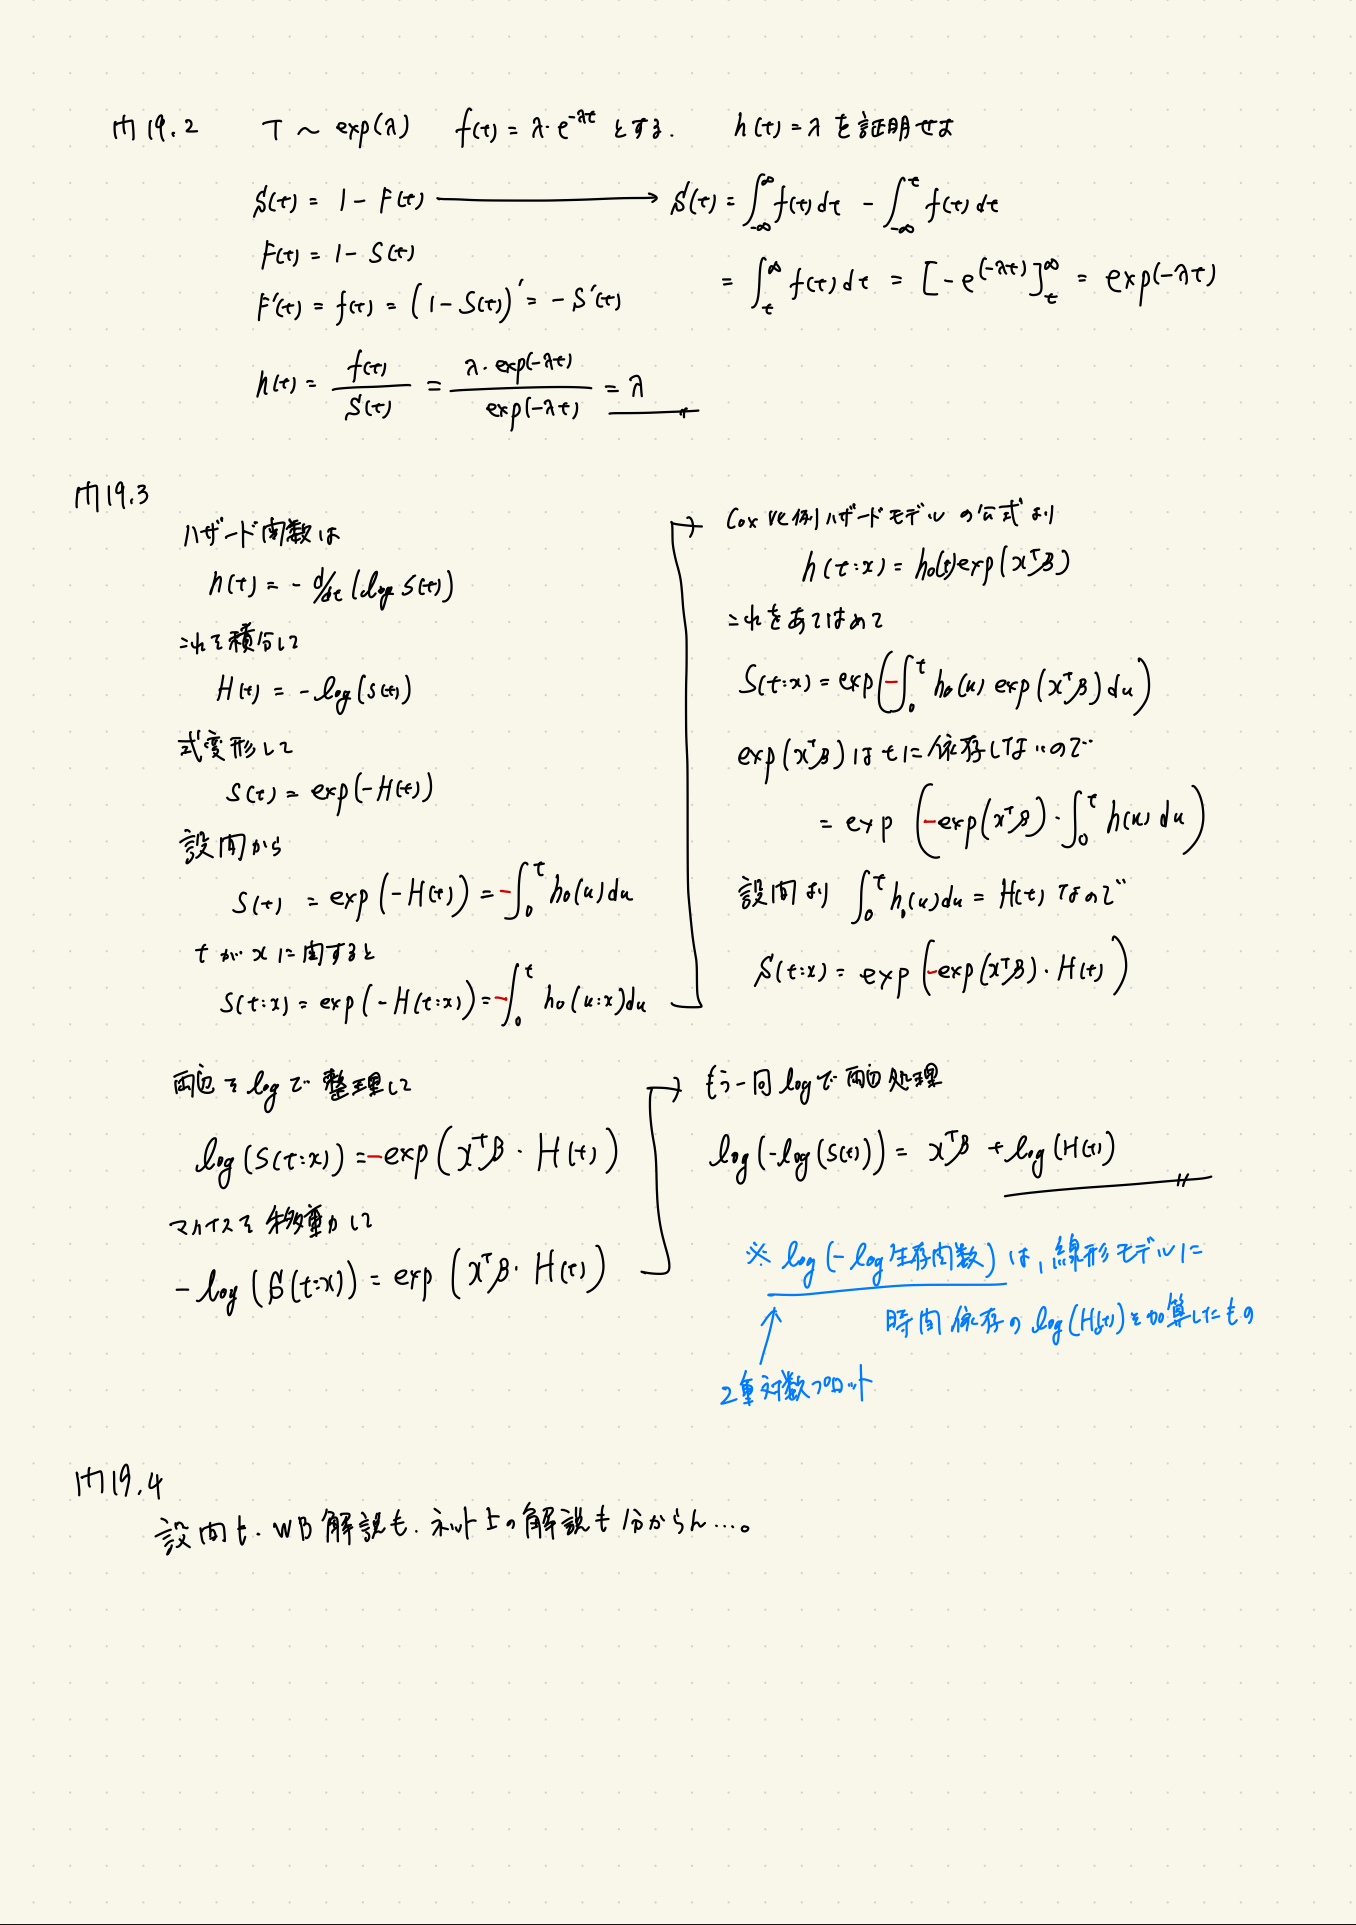 問19.2 T ~ exp(λ) f(t) = λ・e^{-λt} とする. h(t) = λ を証明せよ
S(t) = 1 - F(t) → S(t) = ∫_{-∞}^{∞} f(t) dt - ∫_{-∞}^{t} f(t) dt
F(t) = 1 - S(t)
= ∫_{t}^{∞} f(t) dt = [-e^{(-λt)}]_{t}^{∞} = exp(-λt)
F'(t) = f(t) = (1 - S(t))' = - S'(t)
h(t) = f(t)/S(t) = λ・exp(-λt)/exp(-λt) = λ
問19.3
ハザード関数は
h(t) = - d/dt (log S(t))
これを積分して
H(t) = - log(S(t))
式変形して
S(t) = exp(-H(t))
設問から
S(t) = exp(-H(t)) = -∫_{0}^{t} h₀(u) du
tがxに関すると
S(t:x) = exp(-H(t:x)) = -∫_{0}^{t} h₀(u:x) du
→ Cox比例ハザードモデルの公式より
h(t:x) = h₀(t) exp(x^Tβ)
これをあてはめて
S(t:x) = exp(-∫_{0}^{t} h₀(u) exp(x^Tβ) du)
exp(x^Tβ)はtに依存しないので
= exp(-exp(x^Tβ)・∫_{0}^{t} h(u) du)
設問より ∫_{0}^{t} h₀(u) du = H(t) なので
S(t:x) = exp(-exp(x^Tβ)・H(t))
両辺をlogで整理して
log(S(t:x)) = -exp(x^Tβ・H(t))
マイナスを移動して
- log(S(t:x)) = exp(x^Tβ・H(t))
→ もう一回logで両辺処理
log(-log(S(t))) = x^Tβ + log(H(t))
※ log(-log生存関数)は,線形モデルに
時間依存のlog(H(t))を加算したもの
↑
2重対数プロット
問19.4
設問も.WB解説も.ネット上の解説も分からん…。